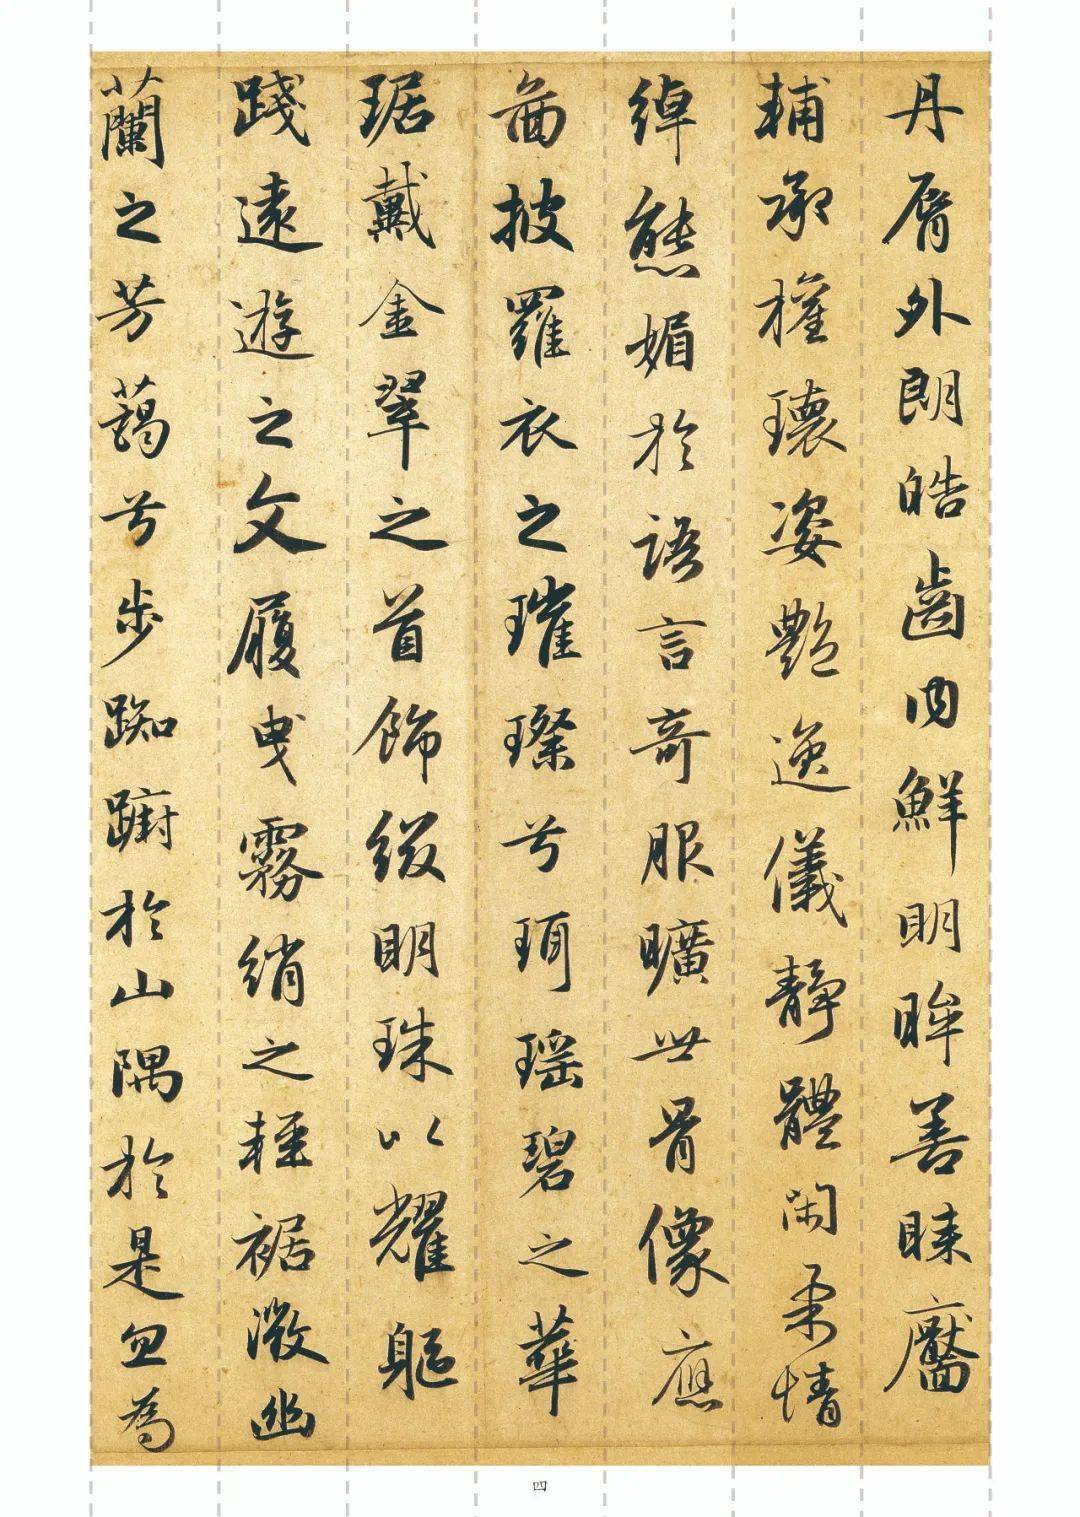 丹脣外朗皓齒內鮮明眸善睞靨
輔承權瓌姿艷逸儀靜體閑柔情
綽態媚於語言奇服曠世骨像應
圖披羅衣之璀璨兮珥瑤碧之華
琚戴金翠之首飾綴明珠以耀軀
踐遠遊之文履曳霧綃之輕裾微幽
蘭之芳藹兮步踟躕於山隅於是忽為
四